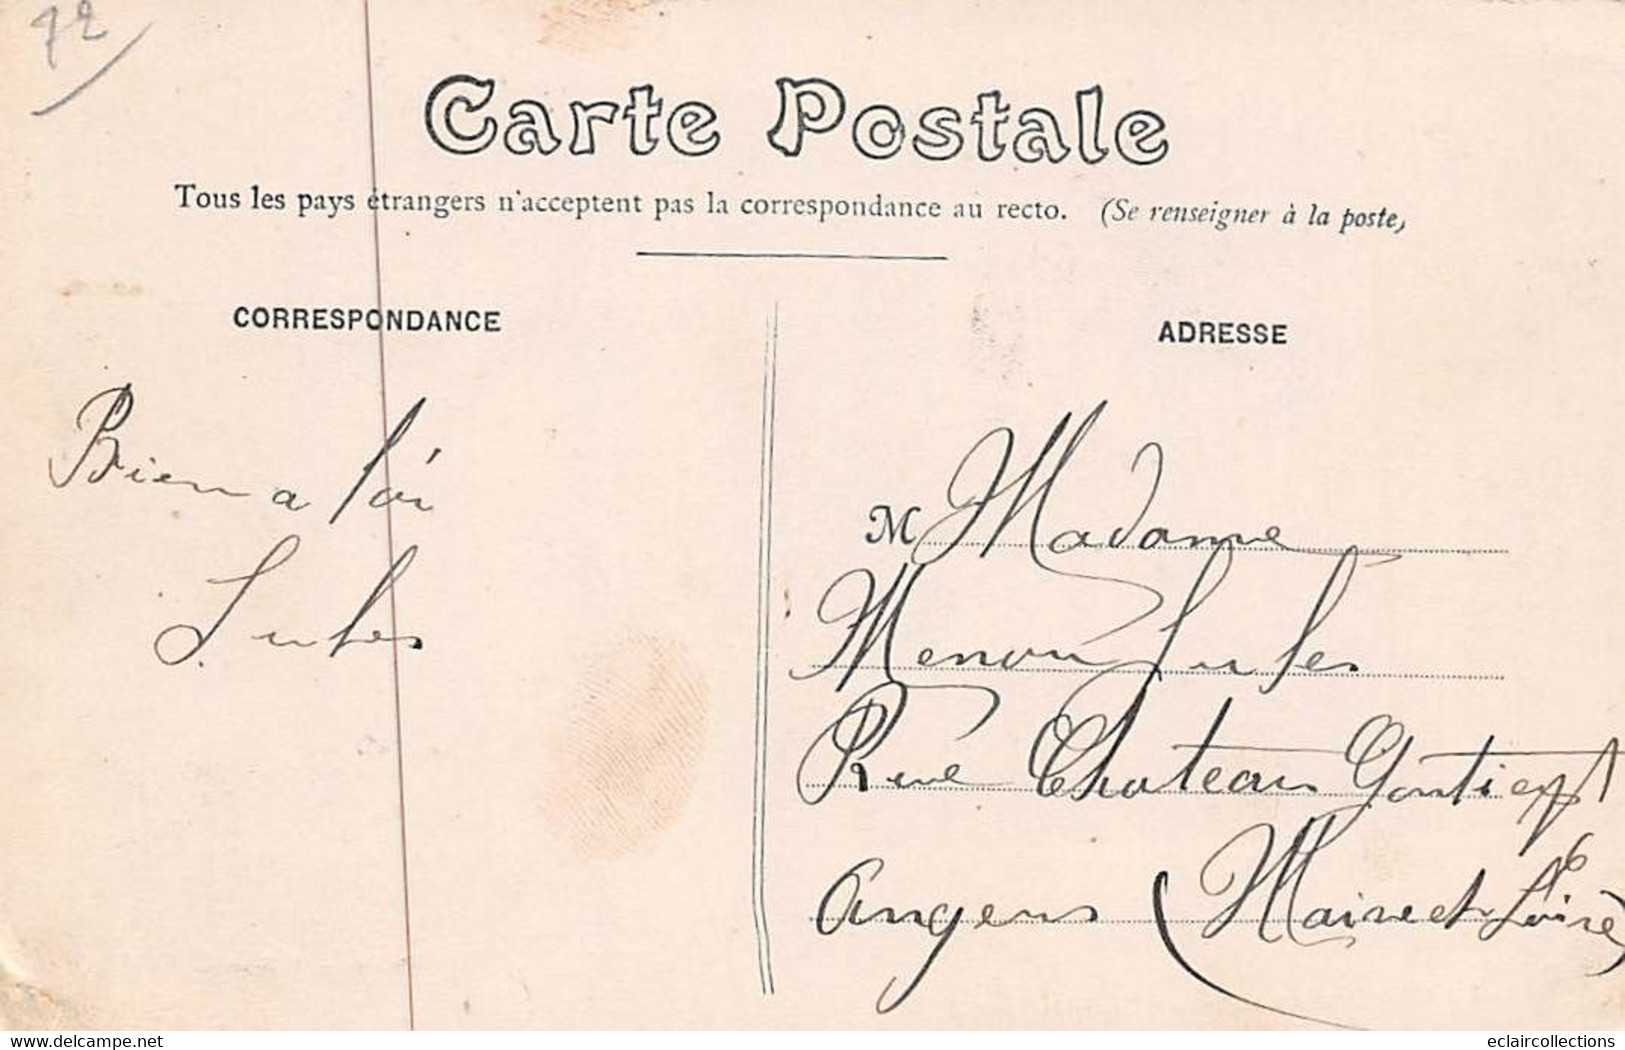 72
Carte Postale
Tous les pays étrangers n'acceptent pas la correspondance au recto. (Se renseigner à la poste)
CORRESPONDANCE
ADRESSE
Bien a toi
Jules
M Madame
Menou Jules
Rue Chateau Gontier
Angers (Maine et Loire)
Delcampe.net
eclaircollections